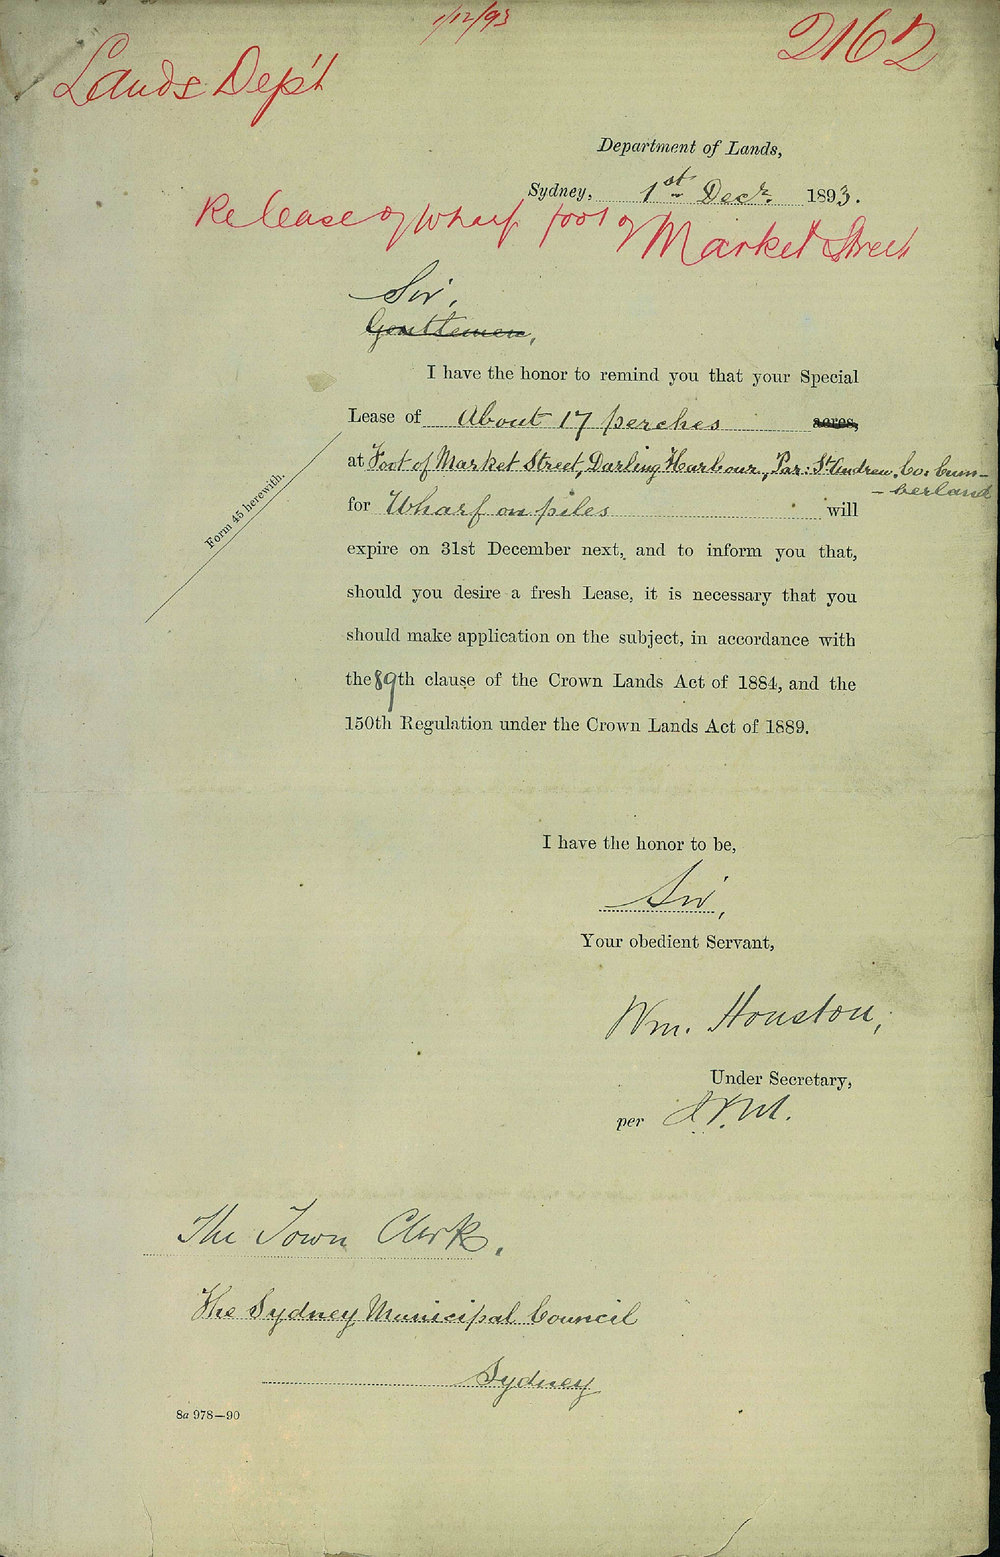 1/12/93
2162
Lands Dep't
Department of Lands,
Sydney, 1st Decr. 1893.
Re lease of Wharf foot of Market Street
Sir,
Gentlemen,
I have the honor to remind you that your Special
Lease of About 17 perches acres,
at Foot of Market Street, Darling Harbour, Par: St Andrew, Co: Cum-
-berland
for Wharf on piles will
expire on 31st December next, and to inform you that,
should you desire a fresh Lease, it is necessary that you
should make application on the subject, in accordance with
the 89th clause of the Crown Lands Act of 1884, and the
150th Regulation under the Crown Lands Act of 1889.
Form 45 herewith.
I have the honor to be,
Sir,
Your obedient Servant,
Wm. Houston,
Under Secretary,
per
The Town Clerk,
The Sydney Municipal Council
Sydney
8a 978—90